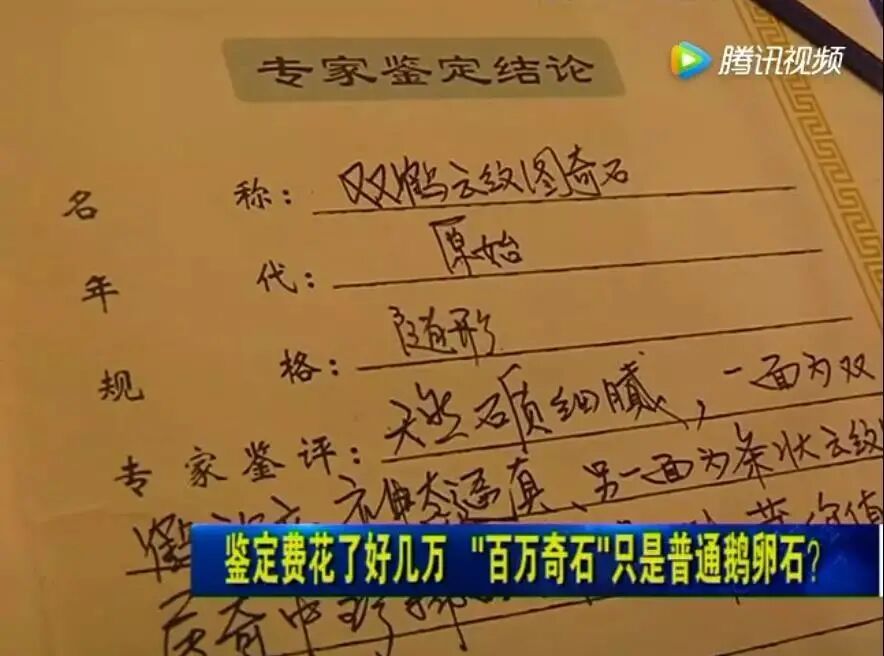 腾讯视频
专家鉴定结论
名称：双鹤云纹图奇石
年代：原始
规格：随形
专家鉴评：天然石质细腻，一面为双
神态逼真、另一面为条状云纹
鉴定费花了好几万 "百万奇石"只是普通鹅卵石？